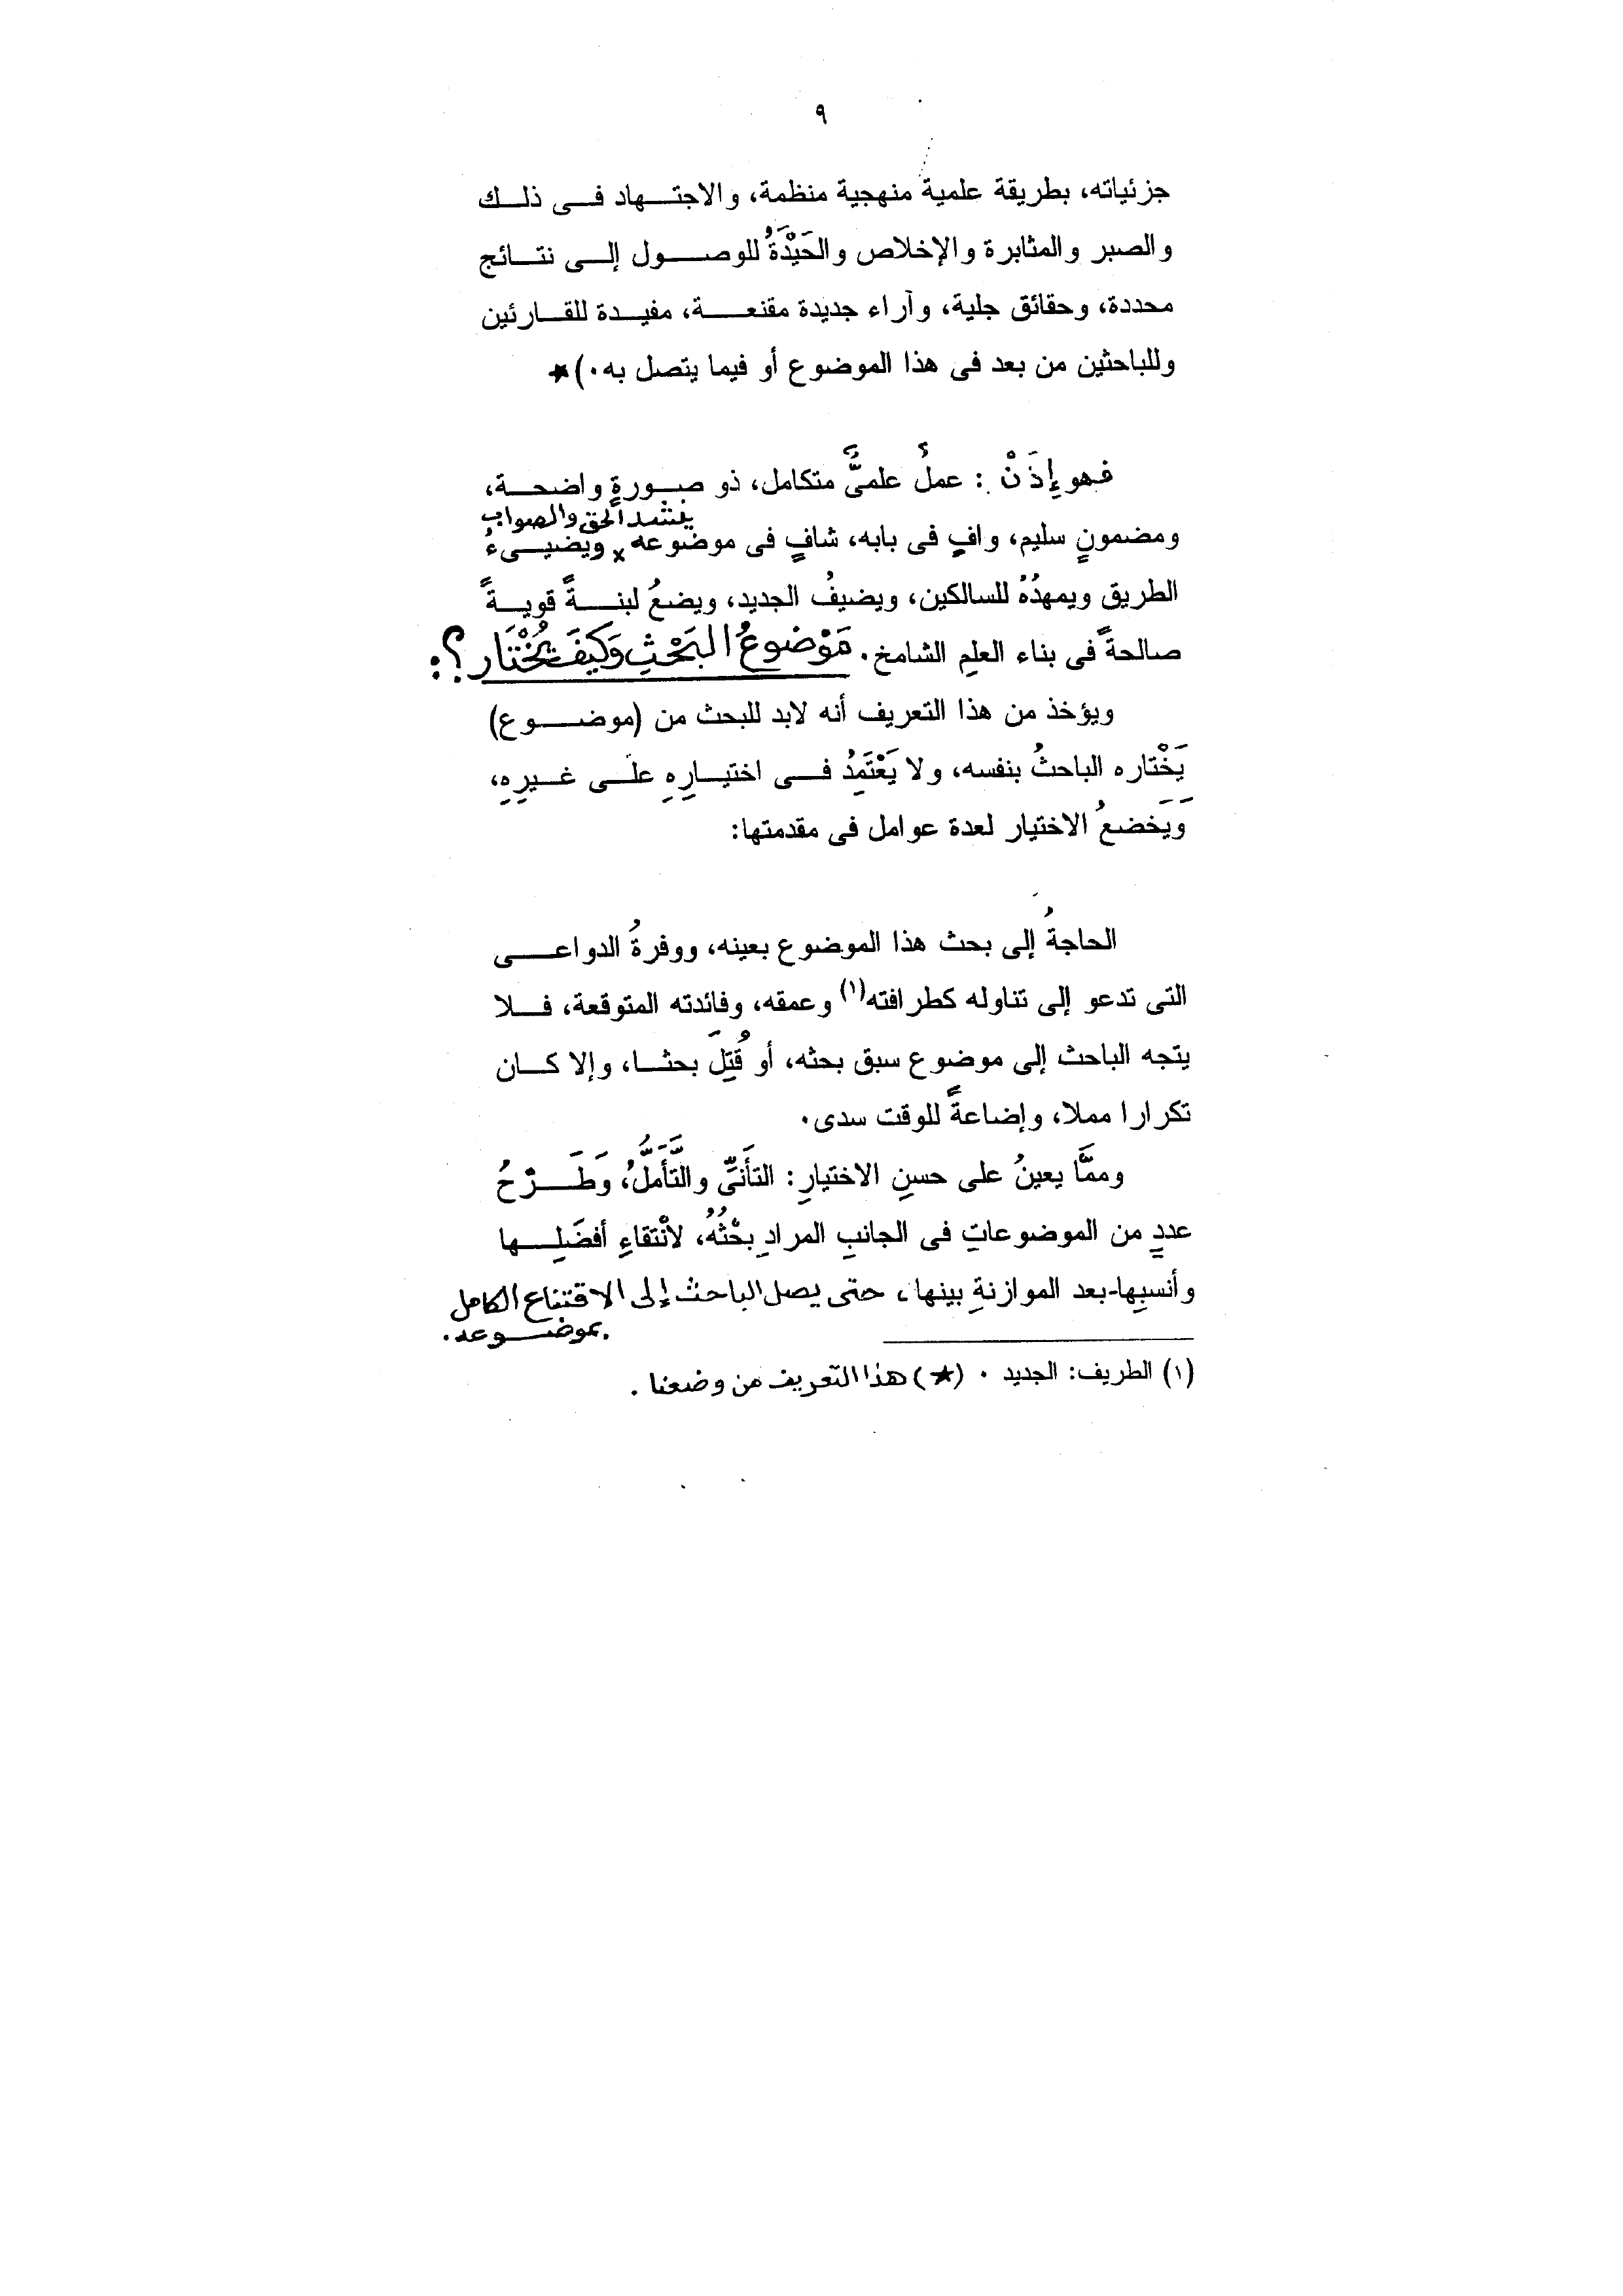 ٩
جزئياته، بطريقة علمية منهجية منظمة، والاجتهاد فى ذلك
والصبر والمثابرة والإخلاص والحَيْدَةُ للوصول إلى نتائج
محددة، وحقائق جلية، وآراء جديدة مقنعة، مفيدة للقارئين
وللباحثين من بعد فى هذا الموضوع أو فيما يتصل به٠)★
فهو إِذَنْ : عملٌ علمىٌّ متكامل، ذو صورةٍ واضحة،
ينشد الحق والصواب
ومضمونٍ سليم، وافٍ فى بابه، شافٍ فى موضوعه × ويضيىءُ
الطريق ويمهدُهُ للسالكين، ويضيفُ الجديد، ويضعُ لبنةً قويةً
صالحةً فى بناء العلم الشامخ. مَوْضوعُ البَحْثِ وَكَيفَ يُخْتَار؟:
ويؤخذ من هذا التعريف أنه لابد للبحث من (موضوع)
يَخْتاره الباحثُ بنفسه، ولا يَعْتَمِدُ فى اختيارِهِ على غيرِهِ،
وَيَخضعُ الاختيار لعدة عوامل فى مقدمتها:
الحاجةُ إلى بحث هذا الموضوع بعينه، ووفرةُ الدواعى
التى تدعو إلى تناوله كطرافته(١) وعمقه، وفائدته المتوقعة، فلا
يتجه الباحث إلى موضوع سبق بحثه، أو قُتِلَ بحثا، وإلا كان
تكرارا مملا، وإضاعةً للوقت سدى٠
وممَّا يعينُ على حسنِ الاختيارِ: التأَنىِّ والتَّأَمُّلُ، وَطَرْحُ
عددٍ من الموضوعاتِ فى الجانبِ المرادِ بحْثُهُ، لانْتقاءِ أفضَلِها
وأنسبِها-بعد الموازنةِ بينها، حتى يصل الباحث إلى الاقتناع الكامل
بموضوعه.
(١) الطريف: الجديد ٠ (★) هذا التعريف من وضعنا .